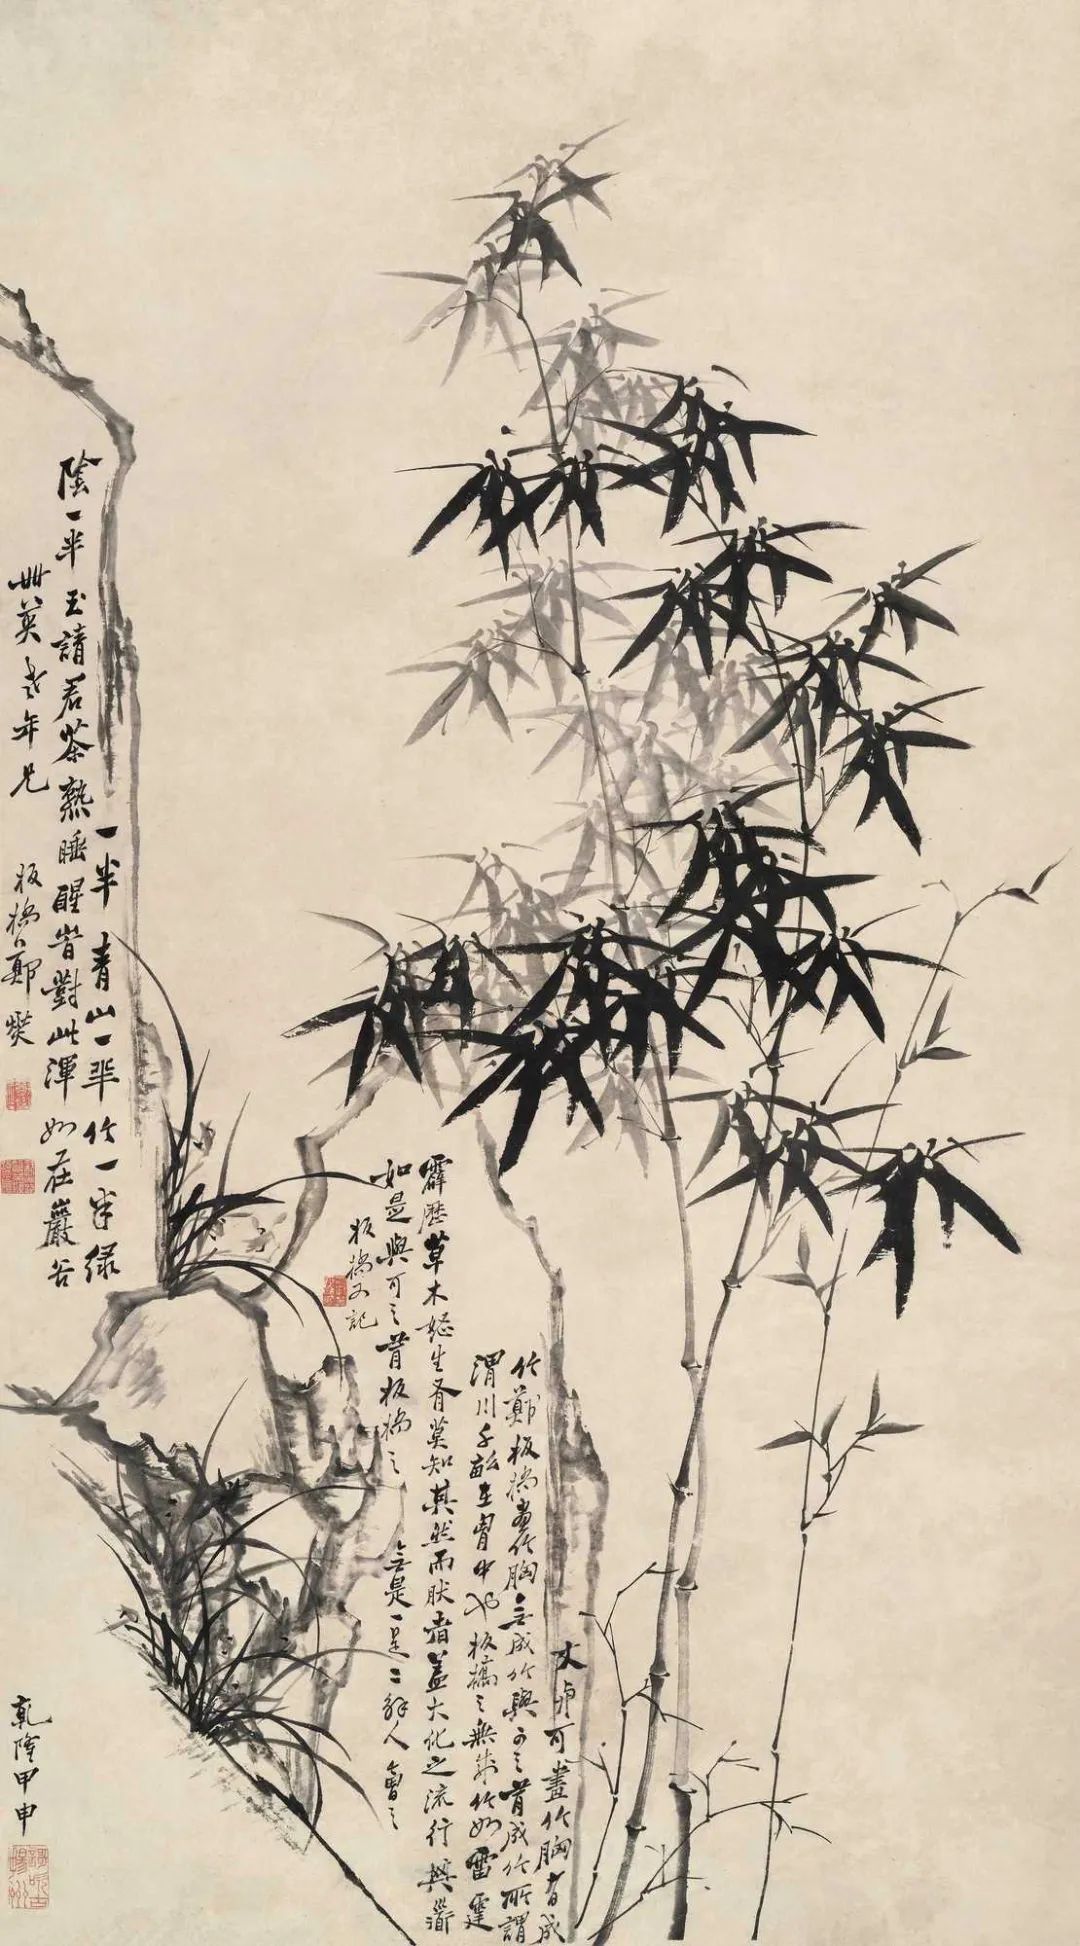 一半青山一半竹一半緑
陰一半玉請君茶熟睡醒旹對此渾如在巖谷
丗英老年兄
板橋鄭燮
文與可畫竹胸有成
竹鄭板橋畫竹胸無成竹與可之有成竹所謂
渭川千畝在胸中也板橋之無成竹如雷霆
霹歷草木怒生有莫知其然而然者蓋大化之流行其道
如是與可之有板橋之無是一是二解人會之
板橋又記
乾隆甲申